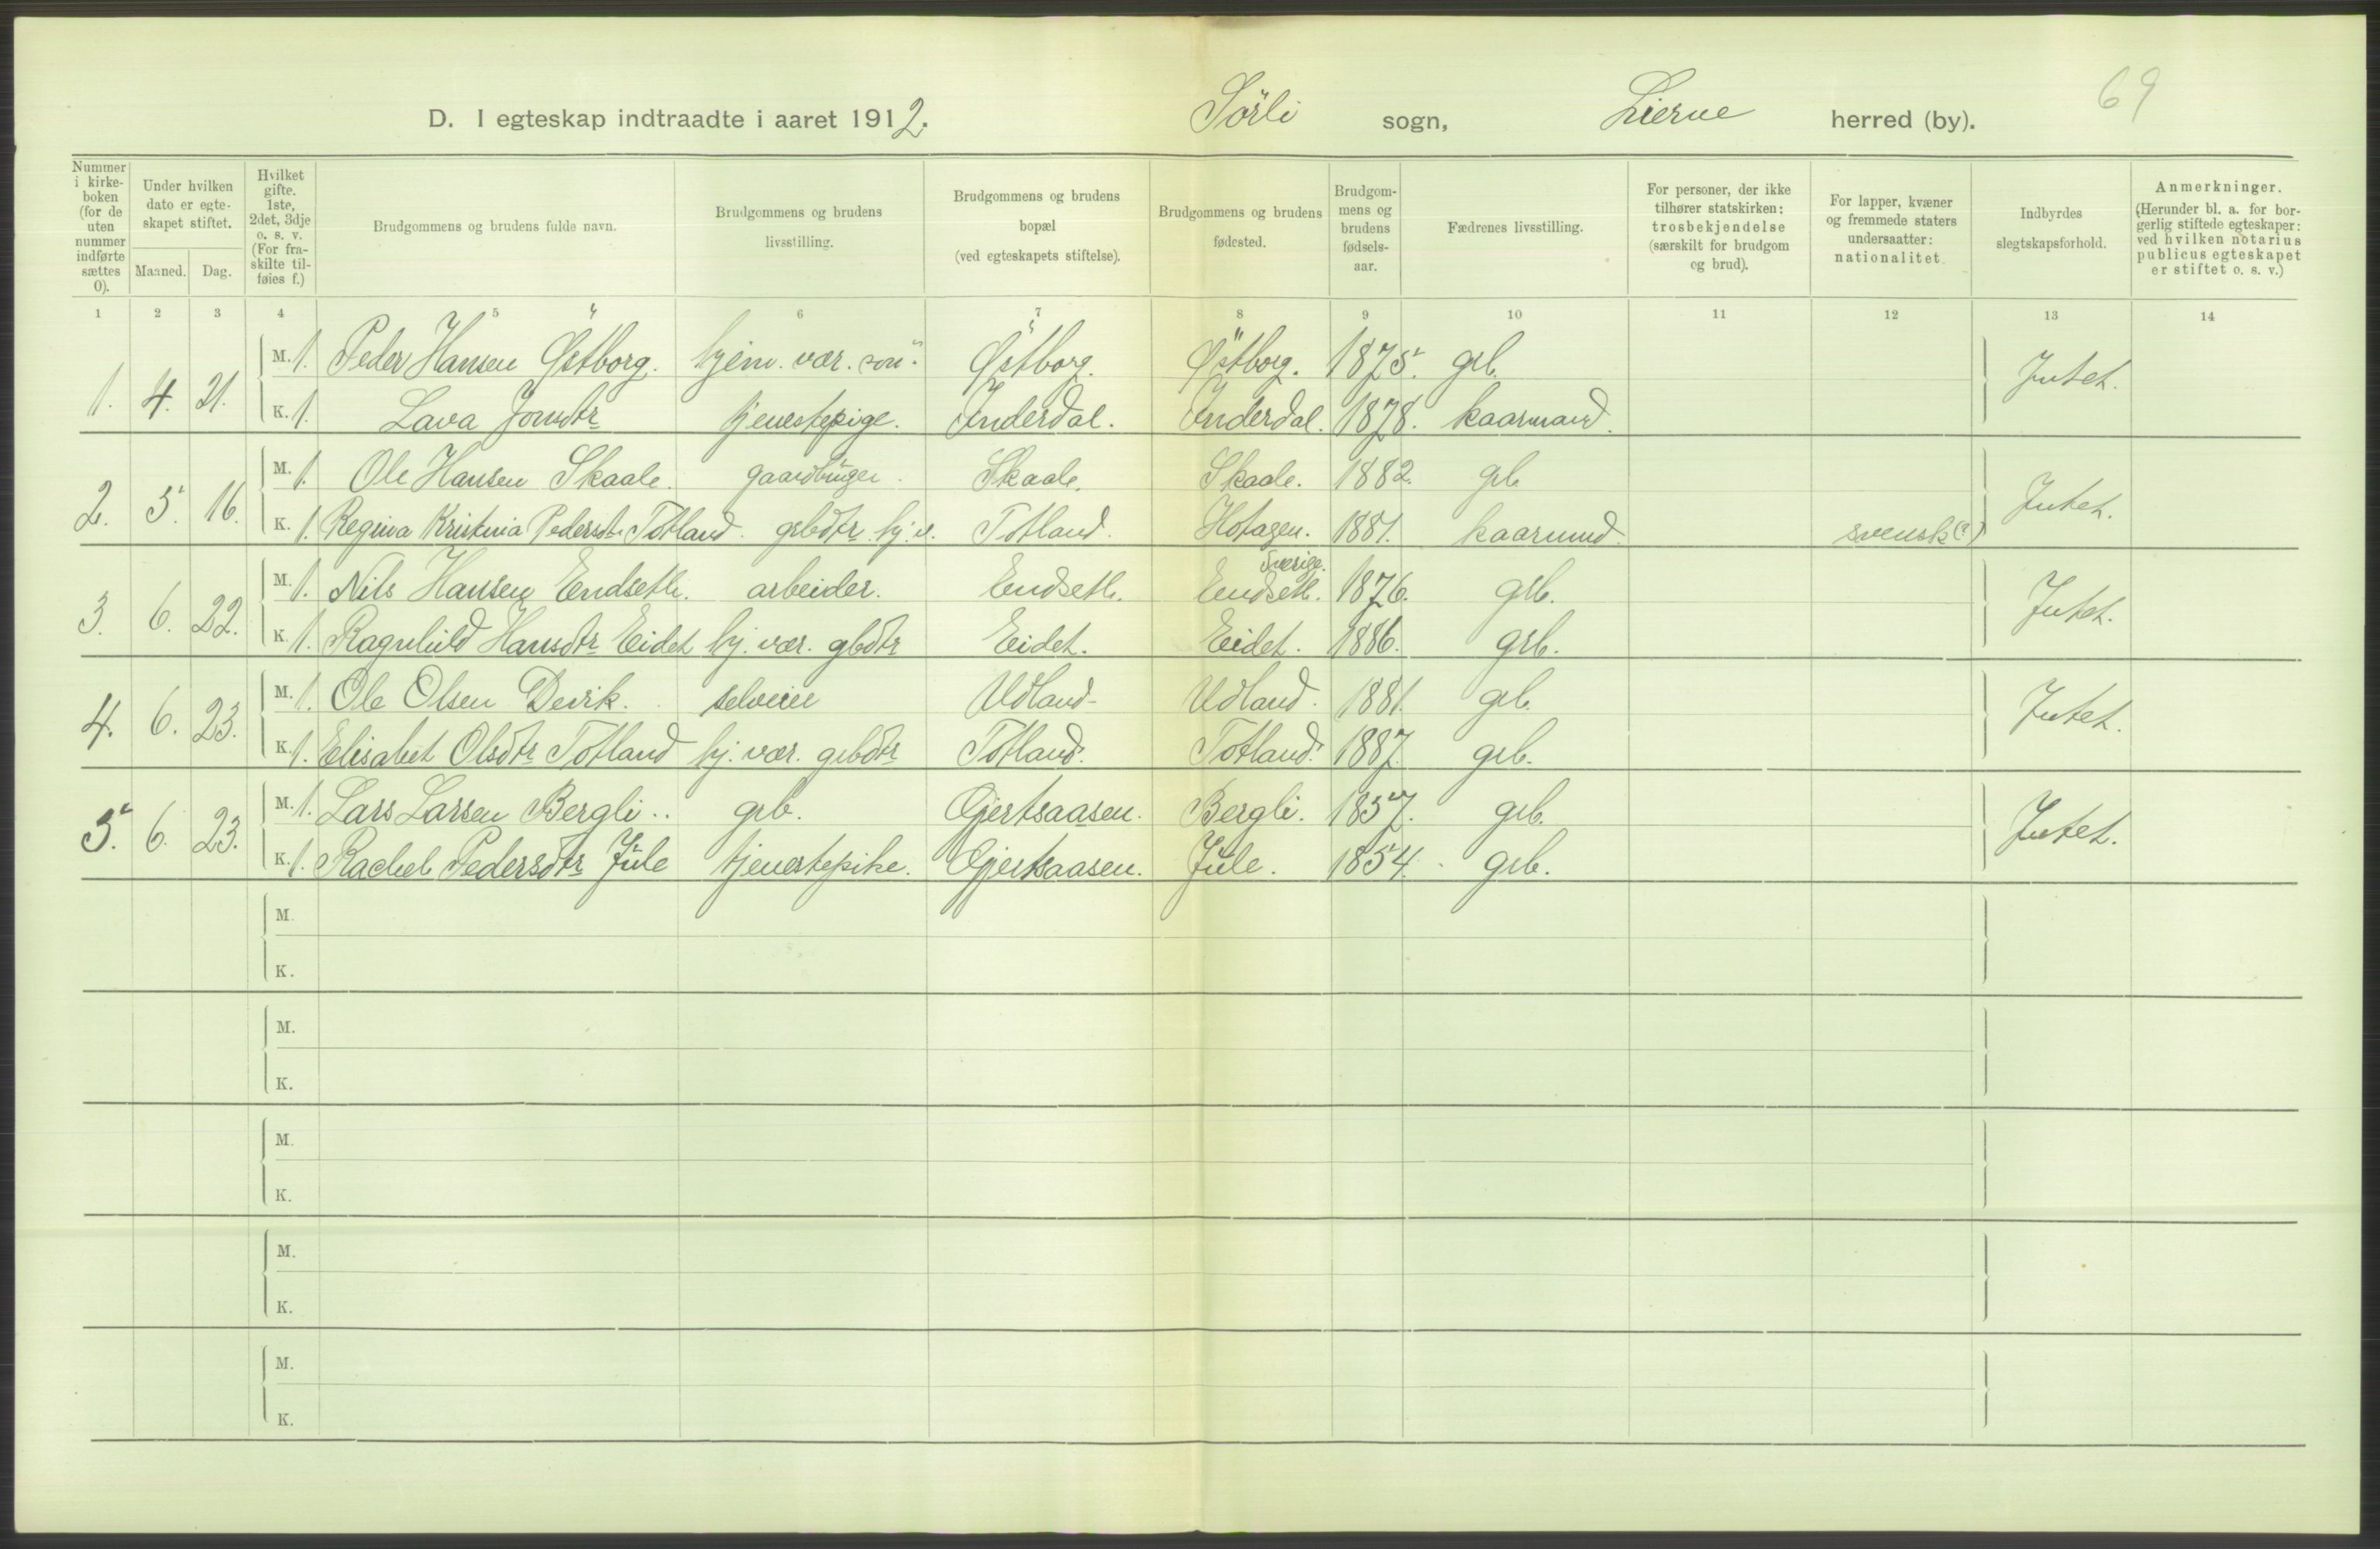 D. I egteskap indtraadte i aaret 1912. Sörli sogn, Lierne herred (by). 69
Nummer i kirkeboken (for de uten nummer indførte sættes 0).
Under hvilken dato er egteskapet stiftet.
Maaned. Dag.
Hvilket gifte. 1ste, 2det, 3dje o. s. v. (For fraskilte tilføies f.)
Brudgommens og brudens fulde navn.
Brudgommens og brudens livsstilling.
Brudgommens og brudens bopæl (ved egteskapets stiftelse).
Brudgommens og brudens fødested.
Brudgommens og brudens fødselsaar.
Fædrenes livsstilling.
For personer, der ikke tilhører statskirken: trosbekjendelse (særskilt for brudgom og brud).
For lapper, kvæner og fremmede staters undersaatter: nationalitet.
Indbyrdes slegtskapsforhold.
Anmerkninger. (Herunder bl. a. for borgerlig stiftede egteskaper: ved hvilken notarius publicus egteskapet er stiftet o. s. v.)
1 2 3 4 5 6 7 8 9 10 11 12 13 14
1. 4. 21. M. 1. Peder Hansen Østborg. hjem. vær. søn. Østborg. Østborg. 1875. grb. Intet.
K. 1. Lava Jonsdtr tjenestepige. Inderdal. Inderdal. 1878. kaarmand.
2. 5. 16. M. 1. Ole Hansen Skaale. gaardbruger. Skaale. Skaale. 1882. grb. Intet.
K. 1. Regina Kristina Pedersdtr Totland grbdtr hj. v. Totland. Hotagen. Sverige. 1881. kaarmand svensk(?)
3. 6. 22. M. 1. Nils Hansen Endseth. arbeider. Endseth. Endseth. 1876. grb. Intet.
K. 1. Ragnhild Hansdtr Eidet hj. vær. gbdtr Eidet. Eidet. 1886. grb.
4. 6. 23. M. 1. Ole Olsen Devik. selveier Udland Udland. 1881. grb. Intet.
K. 1. Elisabet Olsdtr Totland hj. vær. grbdtr Totland. Totland. 1887. grb.
5. 6. 23. M. 1. Lars Larsen Bergli. grb. Gjertsaasen. Bergli. 1857. grb. Intet.
K. 1. Rachel Pedersdtr Jule tjenestepike. Gjertsaasen. Jule. 1854. grb.
M.
K.
M.
K.
M.
K.
M.
K.
M.
K.